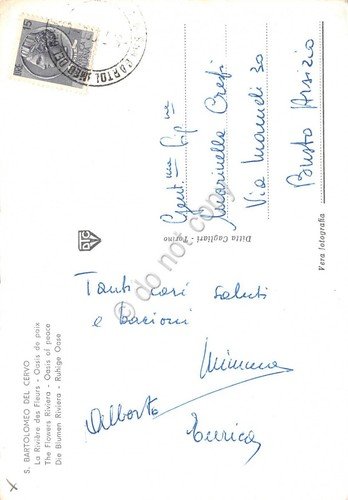 S. BARTOLOMEO DEL CERVO
La Rivière des Fleurs - Oasis de paix
The Flowers Riviera - Oasis of peace
Die Blumen Riviera - Ruhige Oase
Tanti cari saluti
e bacioni
Mimma
Alberto
Enrica
Ditta Cagliari - Torino
Gent.ma Sig.na
Marinella Crespi
Via Mameli 30
Busto Arsizio
Vera fotografia
do not copy